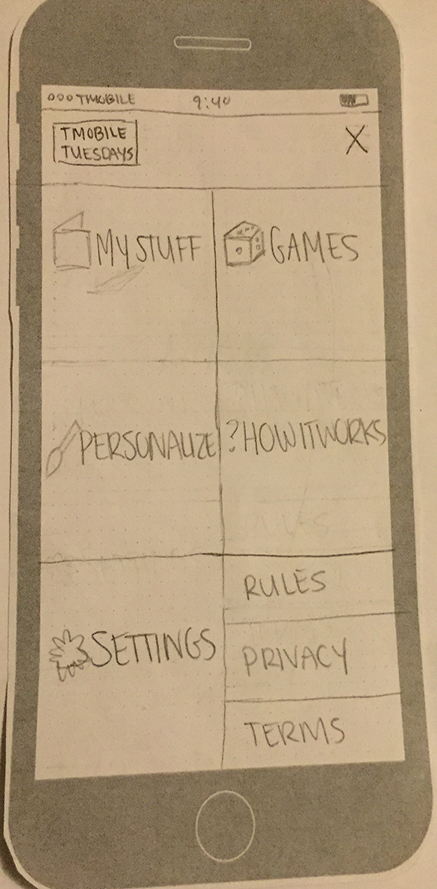 ooo TMOBILE 9:40
TMOBILE
TUESDAYS
X
MY STUFF
GAMES
PERSONALIZE
? HOW IT WORKS
SETTINGS
RULES
PRIVACY
TERMS